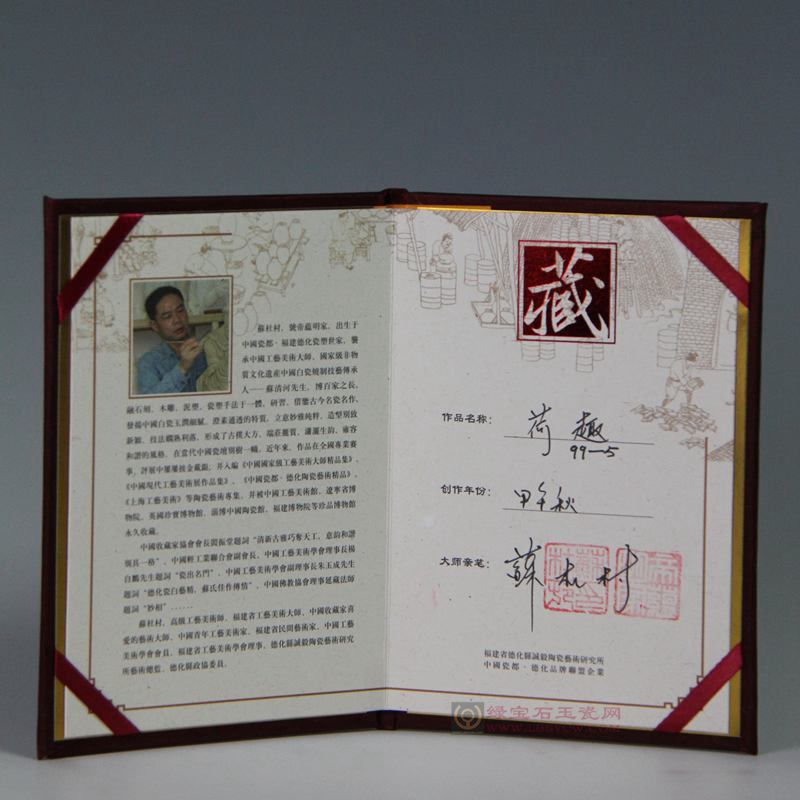 蘇杜村，號帝藴明家，出生于
中國瓷都·福建德化瓷塑世家，襲
承中國工藝美術大師、國家級非物
質文化遺産中國白瓷燒制技藝傳承
人——蘇清河先生，博百家之長，
融石刻、木雕、泥塑、瓷塑手法于一體，研習、借鑒古今名瓷名作，
發揚中國白瓷玉潤細膩、澄素通透的特質，立意妙雅純粹，造型别放
新穎，技法嫻熟利落，形成了古樸大方、端莊麗質、瀟灑生韵、雍容
和諧的風格，在當代中國瓷壇别樹一幟。近年來，作品在全國專業賽
事、評展中屢屢拔金戴銀，并入編《中國國家級工藝美術大師精品集》、
《中國現代工藝美術展作品集》、《中國瓷都·德化陶瓷藝術精品》、
《上海工藝美術》等陶瓷藝術專集，并被中國工藝美術館、遼寧省博
物院、英國珍寶博物館、淄博中國陶瓷館、福建博物院等珍品博物館
永久收藏。
中國收藏家協會會長閻振堂題詞“清新古雅巧奪天工，意韵和諧
别具一格”、中國輕工業聯合會副會長、中國工藝美術學會理事長楊
自鵬先生題詞“瓷出名門”、中國工藝美術學會副理事長朱玉成先生
題詞“德化瓷白藝精，蘇氏佳作傳情”、中國佛教協會理事延藏法師
題詞“妙相”……
蘇杜村，高級工藝美術師，福建省工藝美術大師、中國收藏家喜
愛的藝術大師、中國青年工藝美術家、福建省民間藝術家，中國工藝
美術學會會員、福建省工藝美術學會理事、德化縣誠毅陶瓷藝術研究
所藝術總監、德化縣政協委員。
藏
作品名称：荷趣
99-5
创作年份：甲午秋
大师亲笔：蘇杜村
福建省德化縣誠毅陶瓷藝術研究所
中國瓷都·德化品牌聯盟企業
绿宝石玉瓷网